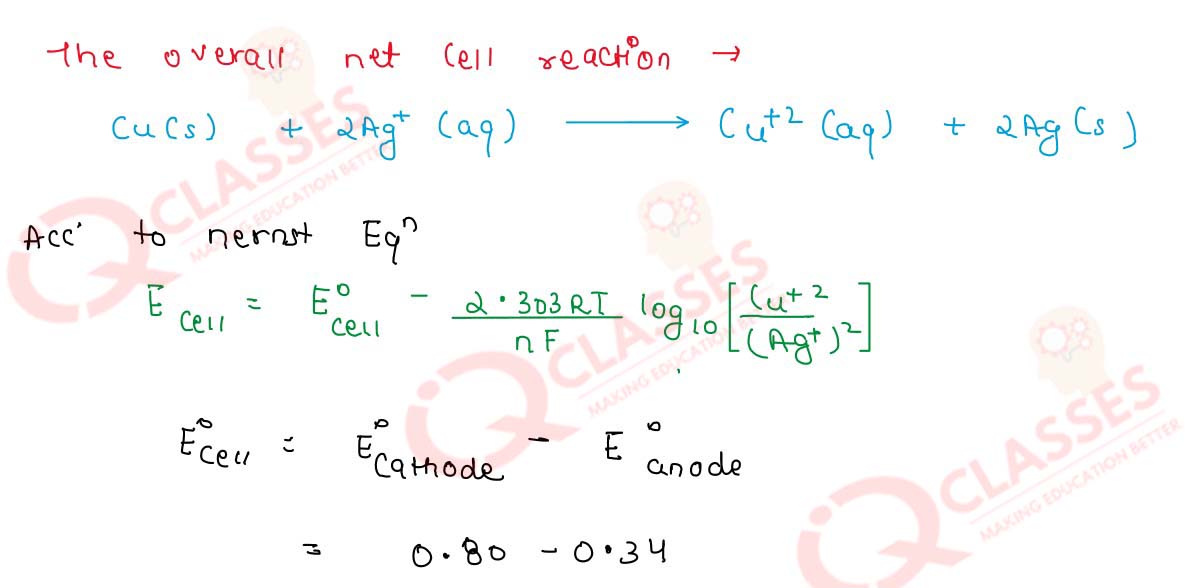 The overall net Cell reaction →
Cu(s) + 2Ag⁺ (aq) ⟶ Cu⁺² (aq) + 2Ag(s)
Acc' to nernst Eqⁿ
E cell = E⁰cell - 2.303RT/nF log₁₀ [Cu⁺²/(Ag⁺)²]
E⁰cell = E⁰Cathode - E⁰anode
= 0.80 - 0.34
IQ CLASSES
MAKING EDUCATION BETTER
IQ CLASSES
MAKING EDUCATION BETTER
IQ CLASSES
MAKING EDUCATION BETTER